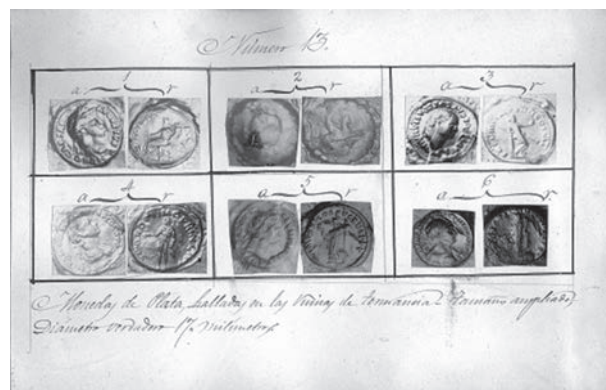 Número 13.
1 2 3
a r a r a r
4 5 6
a r a r a r
Monedas de Plata, halladas en las Ruinas de Termancia. Tamaño ampliado,
Diámetro verdadero 17. milimetros